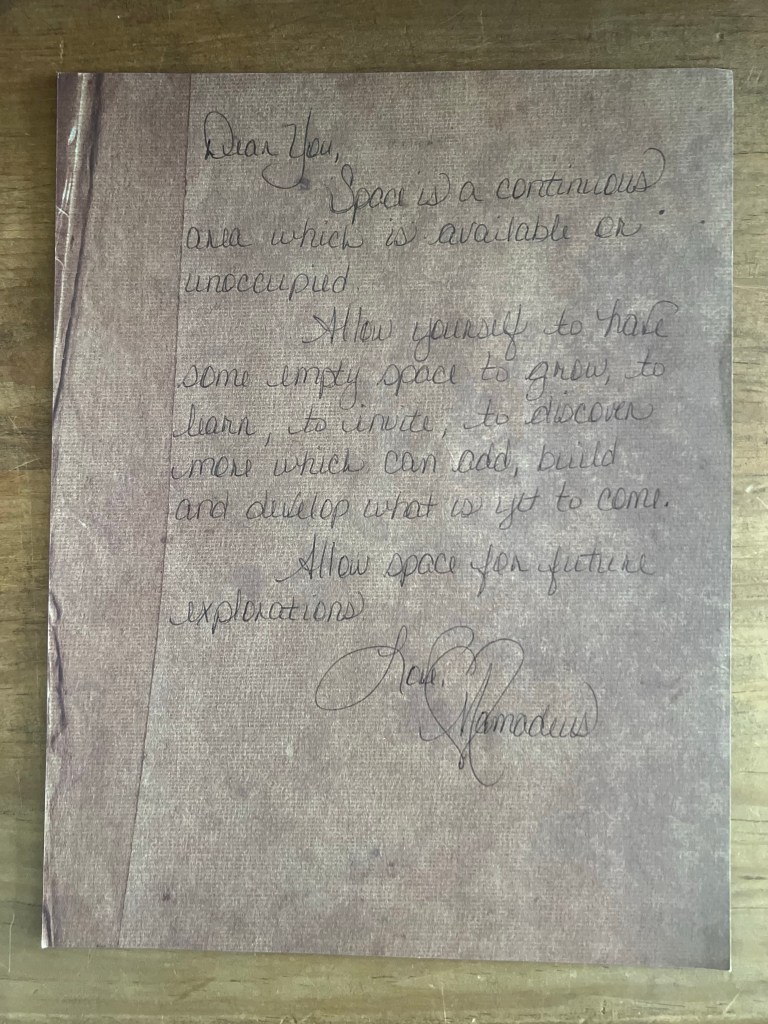 Dear You,
Space is a continuous
area which is available or
unoccupied.
Allow yourself to have
some empty space to grow, to
learn, to invite, to discover
more which can add, build
and develop what is yet to come.
Allow space for future
explorations.
Love,
Mamadeus